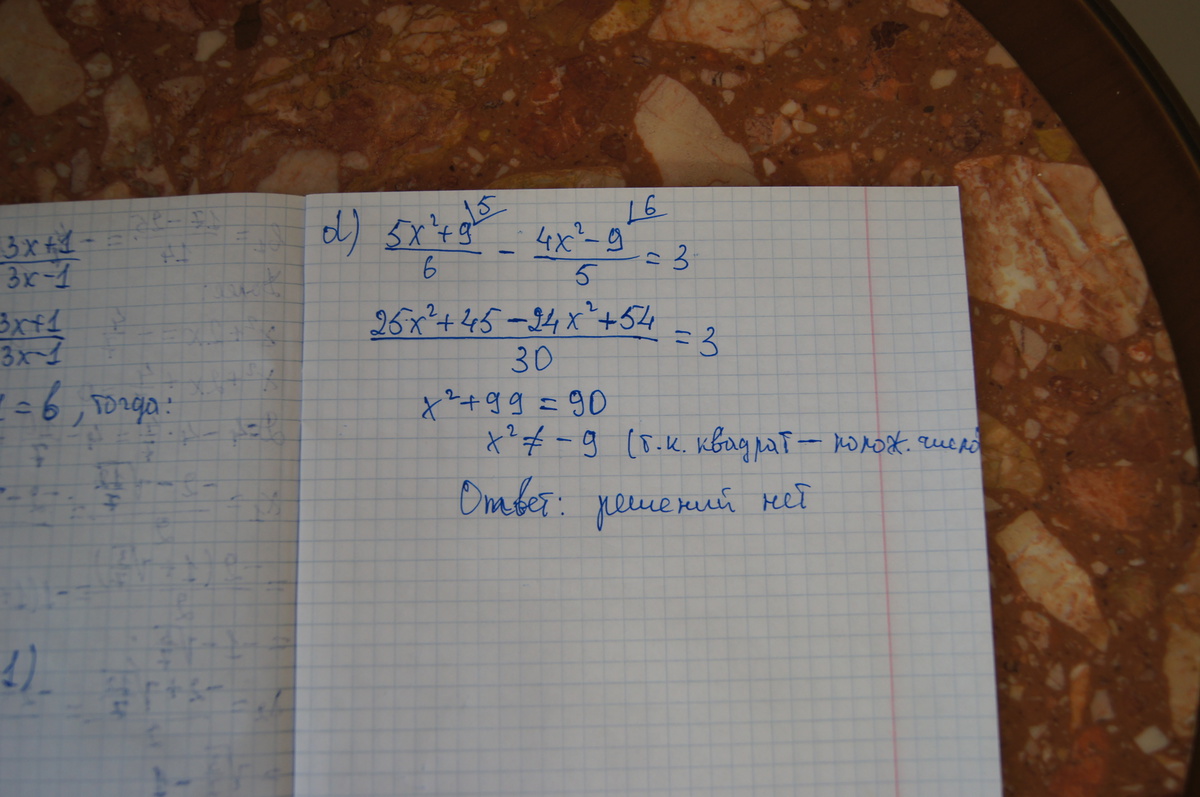 3x+1
3x-1
3x+1
3x-1
= 6, тогда:
1)
d) 5x²+9 ⌊5 / 6 - 4x²-9 ⌊6 / 5 = 3
25x²+45-24x²+54 / 30 = 3
x²+99 = 90
x² ≠ -9 (т.к. квадрат — полож. число
Ответ: решений нет